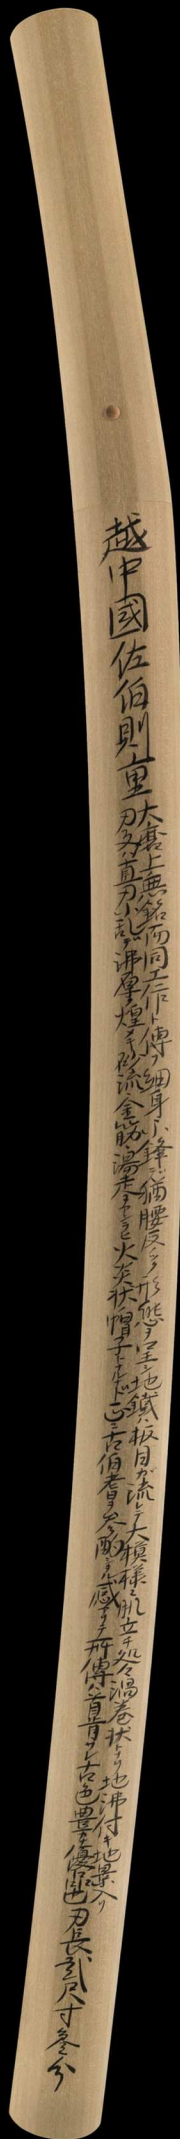 越中國佐伯則重
大磨上無銘而同工作ト傳フ細身小鋒ニ猶腰反ツク形態ヲ呈シ地鐵ハ板目ガ流レテ大模様ニ肌立チ処々渦巻状トナリ地沸付キ地景入リ
刃文ハ直刃小乱デ沸厚ク煌メキ砂流金筋湯走マジエ火炎状ノ帽子トナルド正ニ古伯耆ヲ参酌スル感アリテ所傳ハ首肯サレ古色豊カ優品也
刃長弐尺寸参分